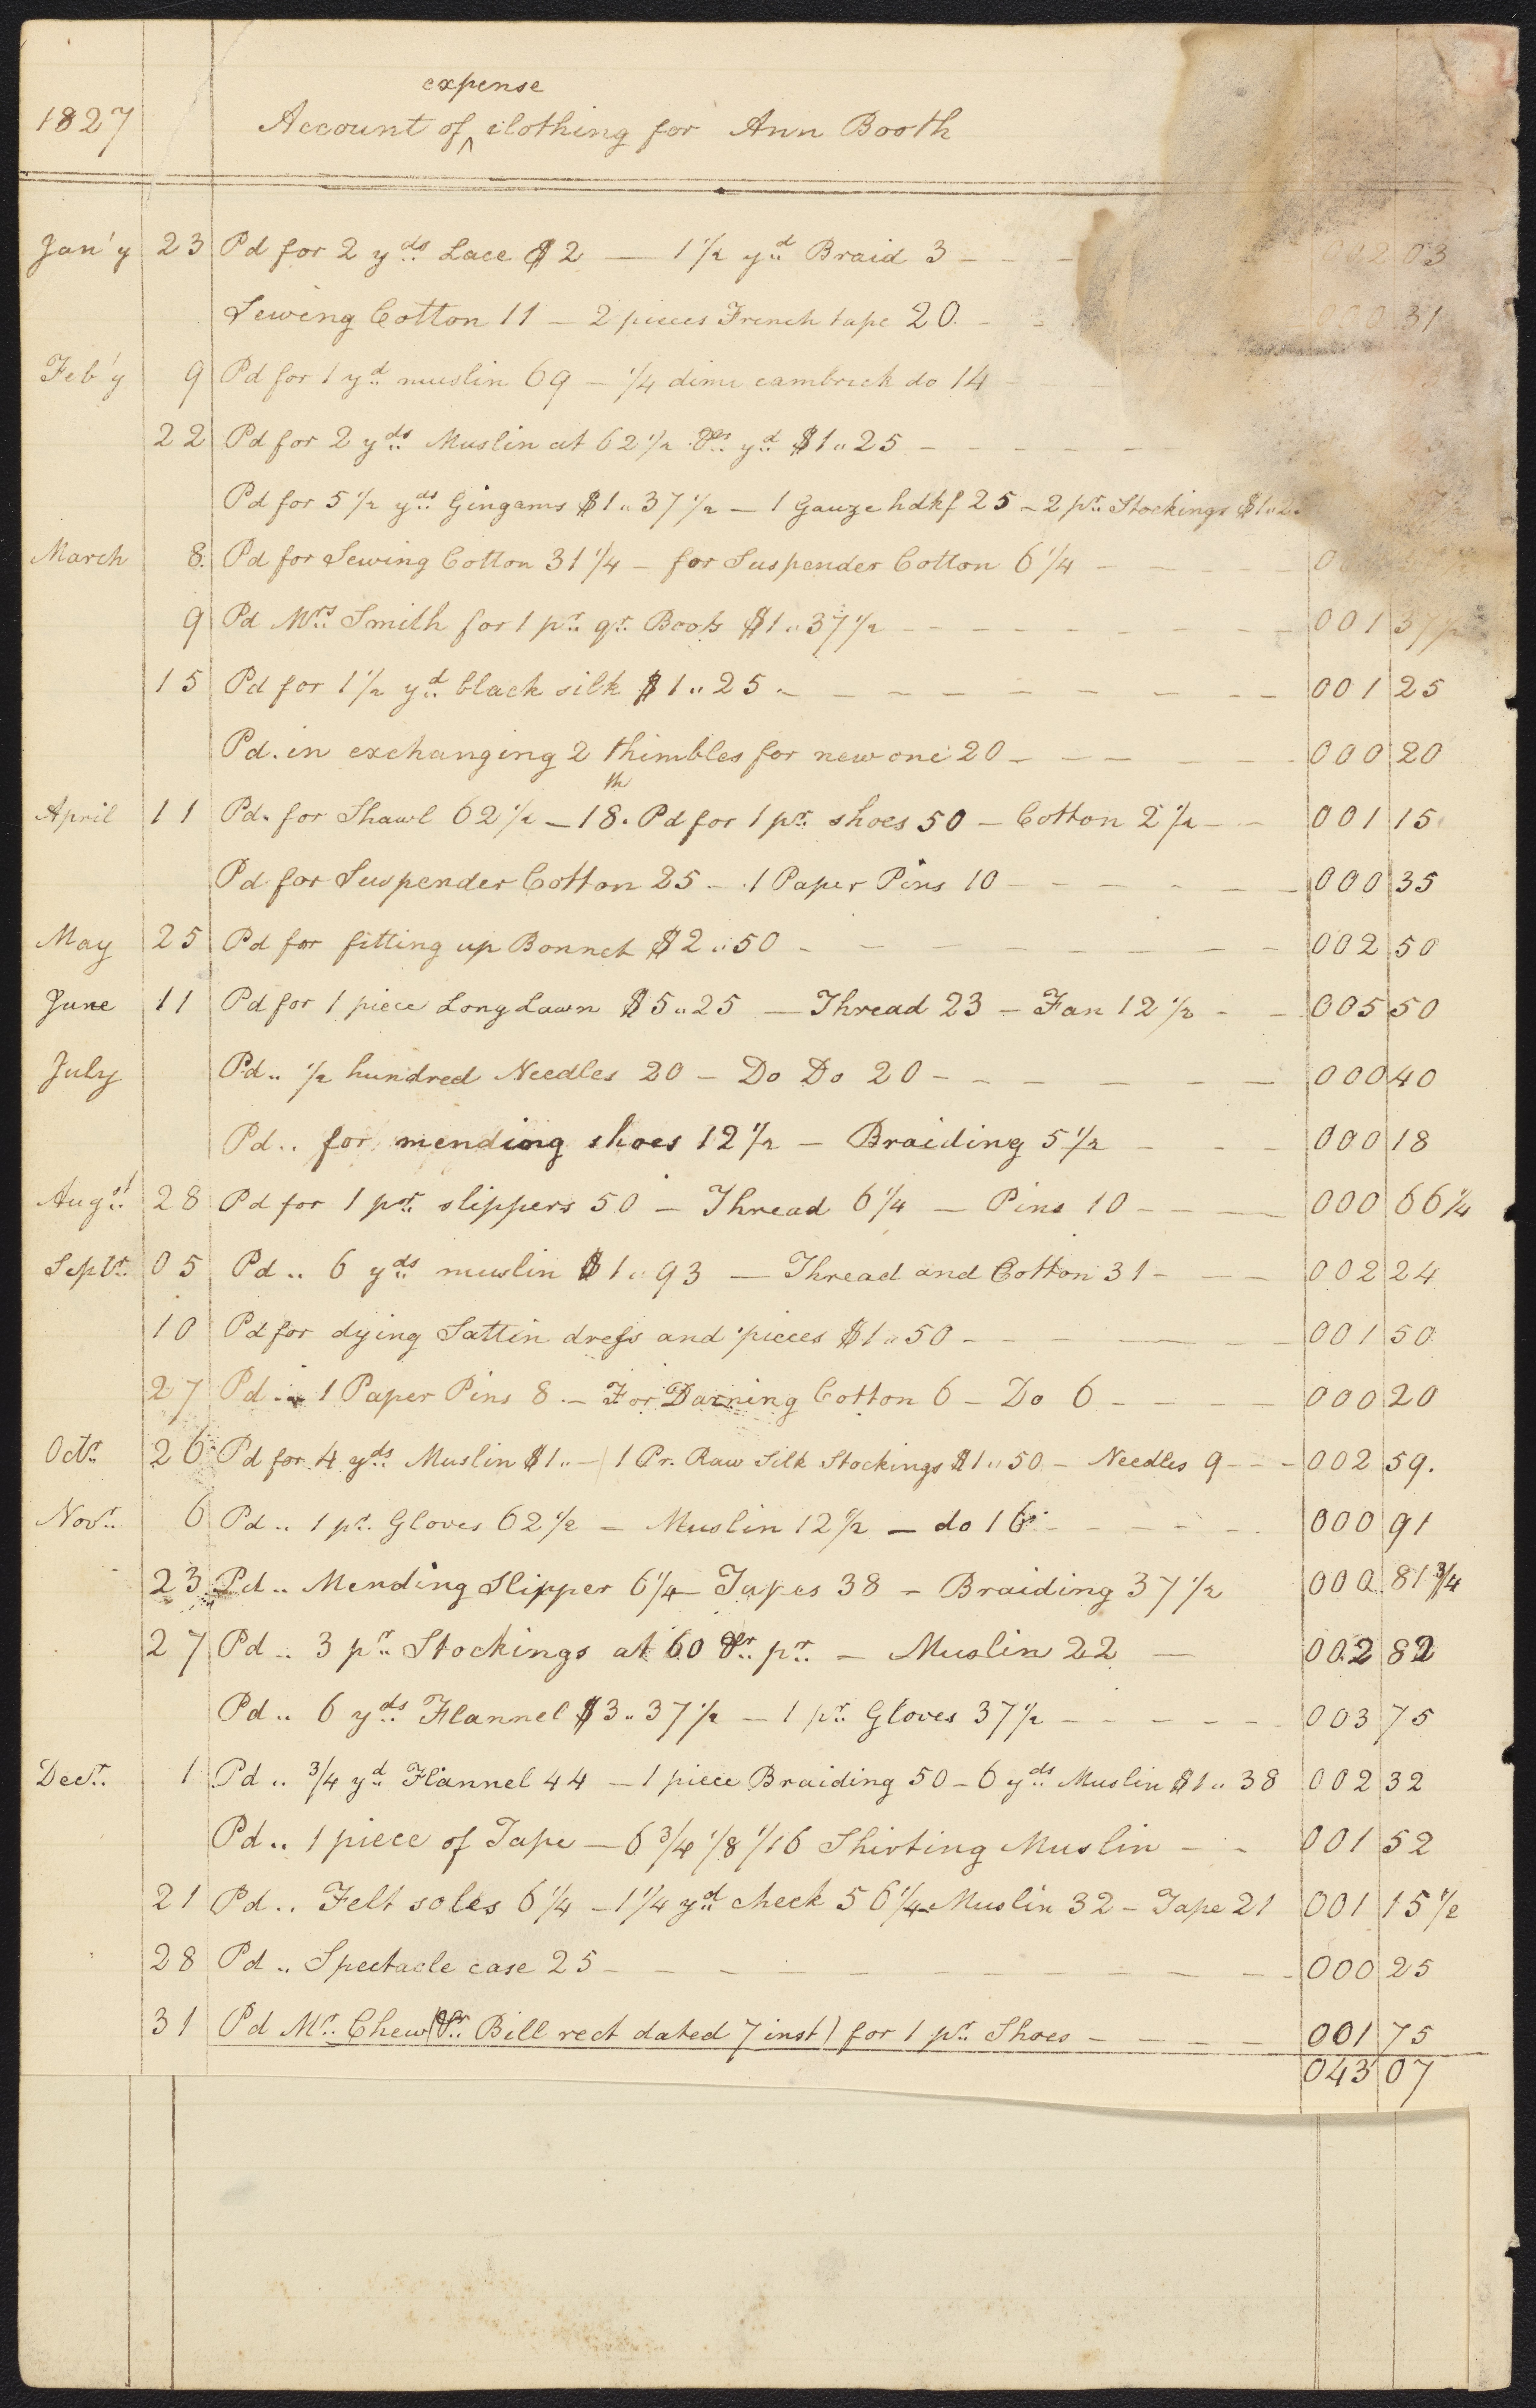 expense
1827 Account of ^ clothing for Ann Booth
Jan'y 23 Pd for 2 yds Lace $2 — 1 1/2 yd Braid 3 - - - 002 03
Sewing Cotton 11 — 2 pieces French tape 20. - - 000 31
Feb'y 9 Pd for 1 yd muslin 69 — 1/4 dimi cambrick do 14 -
22 Pd for 2 yds Muslin at 62 1/2 Pr yd $1..25 - - - - - -
Pd for 5 1/2 yds Gingams $1..37 1/2 — 1 Gauze hdkf 25 - 2 pr Stockings $1..2
March 8. Pd for Sewing Cotton 31 1/4 — for Suspender Cotton 6 1/4 - - - - - 0
9 Pd Mrs Smith for 1 pr qr Boots $1..37 1/2 - - - - - - - - - 001 37 1/2
15 Pd for 1 1/2 yd black silk $1..25 - - - - - - - - - - 001 25
Pd. in exchanging 2 thimbles for new one 20 - - - - - - 000 20
April 11 Pd. for Shawl 62 1/2 — 18th. Pd for 1 pr shoes 50 — Cotton 2 1/2 - - 001 15
Pd for Suspender Cotton 25 - 1 Paper Pins 10 - - - - - - 000 35
May 25 Pd for fitting up Bonnet $2..50 - - - - - - - - 002 50
June 11 Pd for 1 piece Long Lawn $5..25 — Thread 23 — Fan 12 1/2 - - 005 50
July Pd.. 1/2 hundred Needles 20 — Do Do 20 - - - - - - - 000 40
Pd.. for mending shoes 12 1/2 — Braiding 5 1/2 - - - 000 18
Augst 28 Pd for 1 pr slippers 50 — Thread 6 1/4 — Pins 10 - - - - 000 66 1/4
Septr 05 Pd.. 6 yds muslin $1..93 — Thread and Cotton 31 - - - 002 24
10 Pd for dying Sattin dress and pieces $1..50 - - - - - - - 001 50
27 Pd .. 1 Paper Pins 8. — For Darning Cotton 6 — Do 6 - - - - 000 20
Octr 26 Pd for 4 yds Muslin $1.. — 1 Pr. Raw Silk Stockings $1..50 — Needles 9 - - - 002 59.
Novr 6 Pd.. 1 pr Gloves 62 1/2 — Muslin 12 1/2 — do 16 - - - - - 000 91
23 Pd.. Mending Slipper 6 1/4 — Tapes 38 — Braiding 37 1/2 000 81 3/4
27 Pd.. 3 pr Stockings at 60 Pr pr — Muslin 22 — 002 82
Pd.. 6 yds Flannel $3..37 1/2 — 1 pr Gloves 37 1/2 - - - - - - 003 75
Decr 1 Pd.. 3/4 yd Flannel 44 — 1 piece Braiding 50 - 6 yds Muslin $1..38 002 32
Pd.. 1 piece of Tape — 6 3/4 1/8 1/16 Shirting Muslin - - 001 52
21 Pd.. Felt soles 6 1/4 — 1 1/4 yd check 56 1/4 - Muslin 32 - Tape 21 001 15 1/2
28 Pd.. Spectacle case 25 - - - - - - - - - - 000 25
31 Pd Mr. Chew (Pr Bill rect dated 7 inst) for 1 pr Shoes - - - - 001 75
043 07